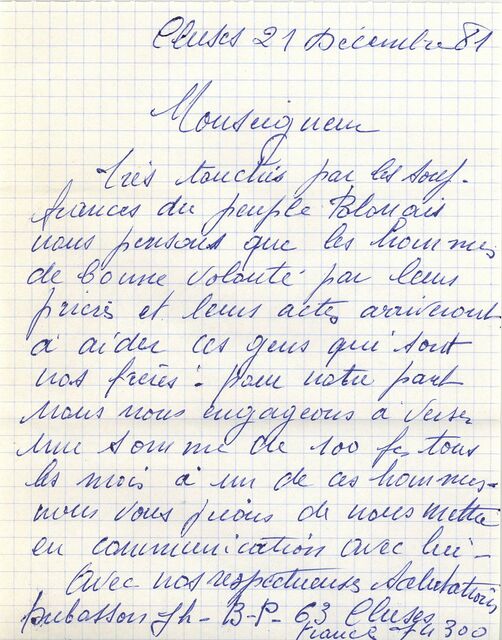 Cluses 21 Décembre 81
Monseigneur
très touchés par les souf-
frances du peuple Polonais
nous pensons que les hommes
de bonne volonté par leurs
prières et leurs actes arriveront
à aider ces gens qui sont
nos frères : pour notre part
nous nous engageons à verser
une somme de 100 fr tous
les mois à un de ces hommes -
nous vous prions de nous mettre
en communication avec lui -
Avec nos respectueuses salutations
Jh - B-P- 63 Cluses
France 74 300